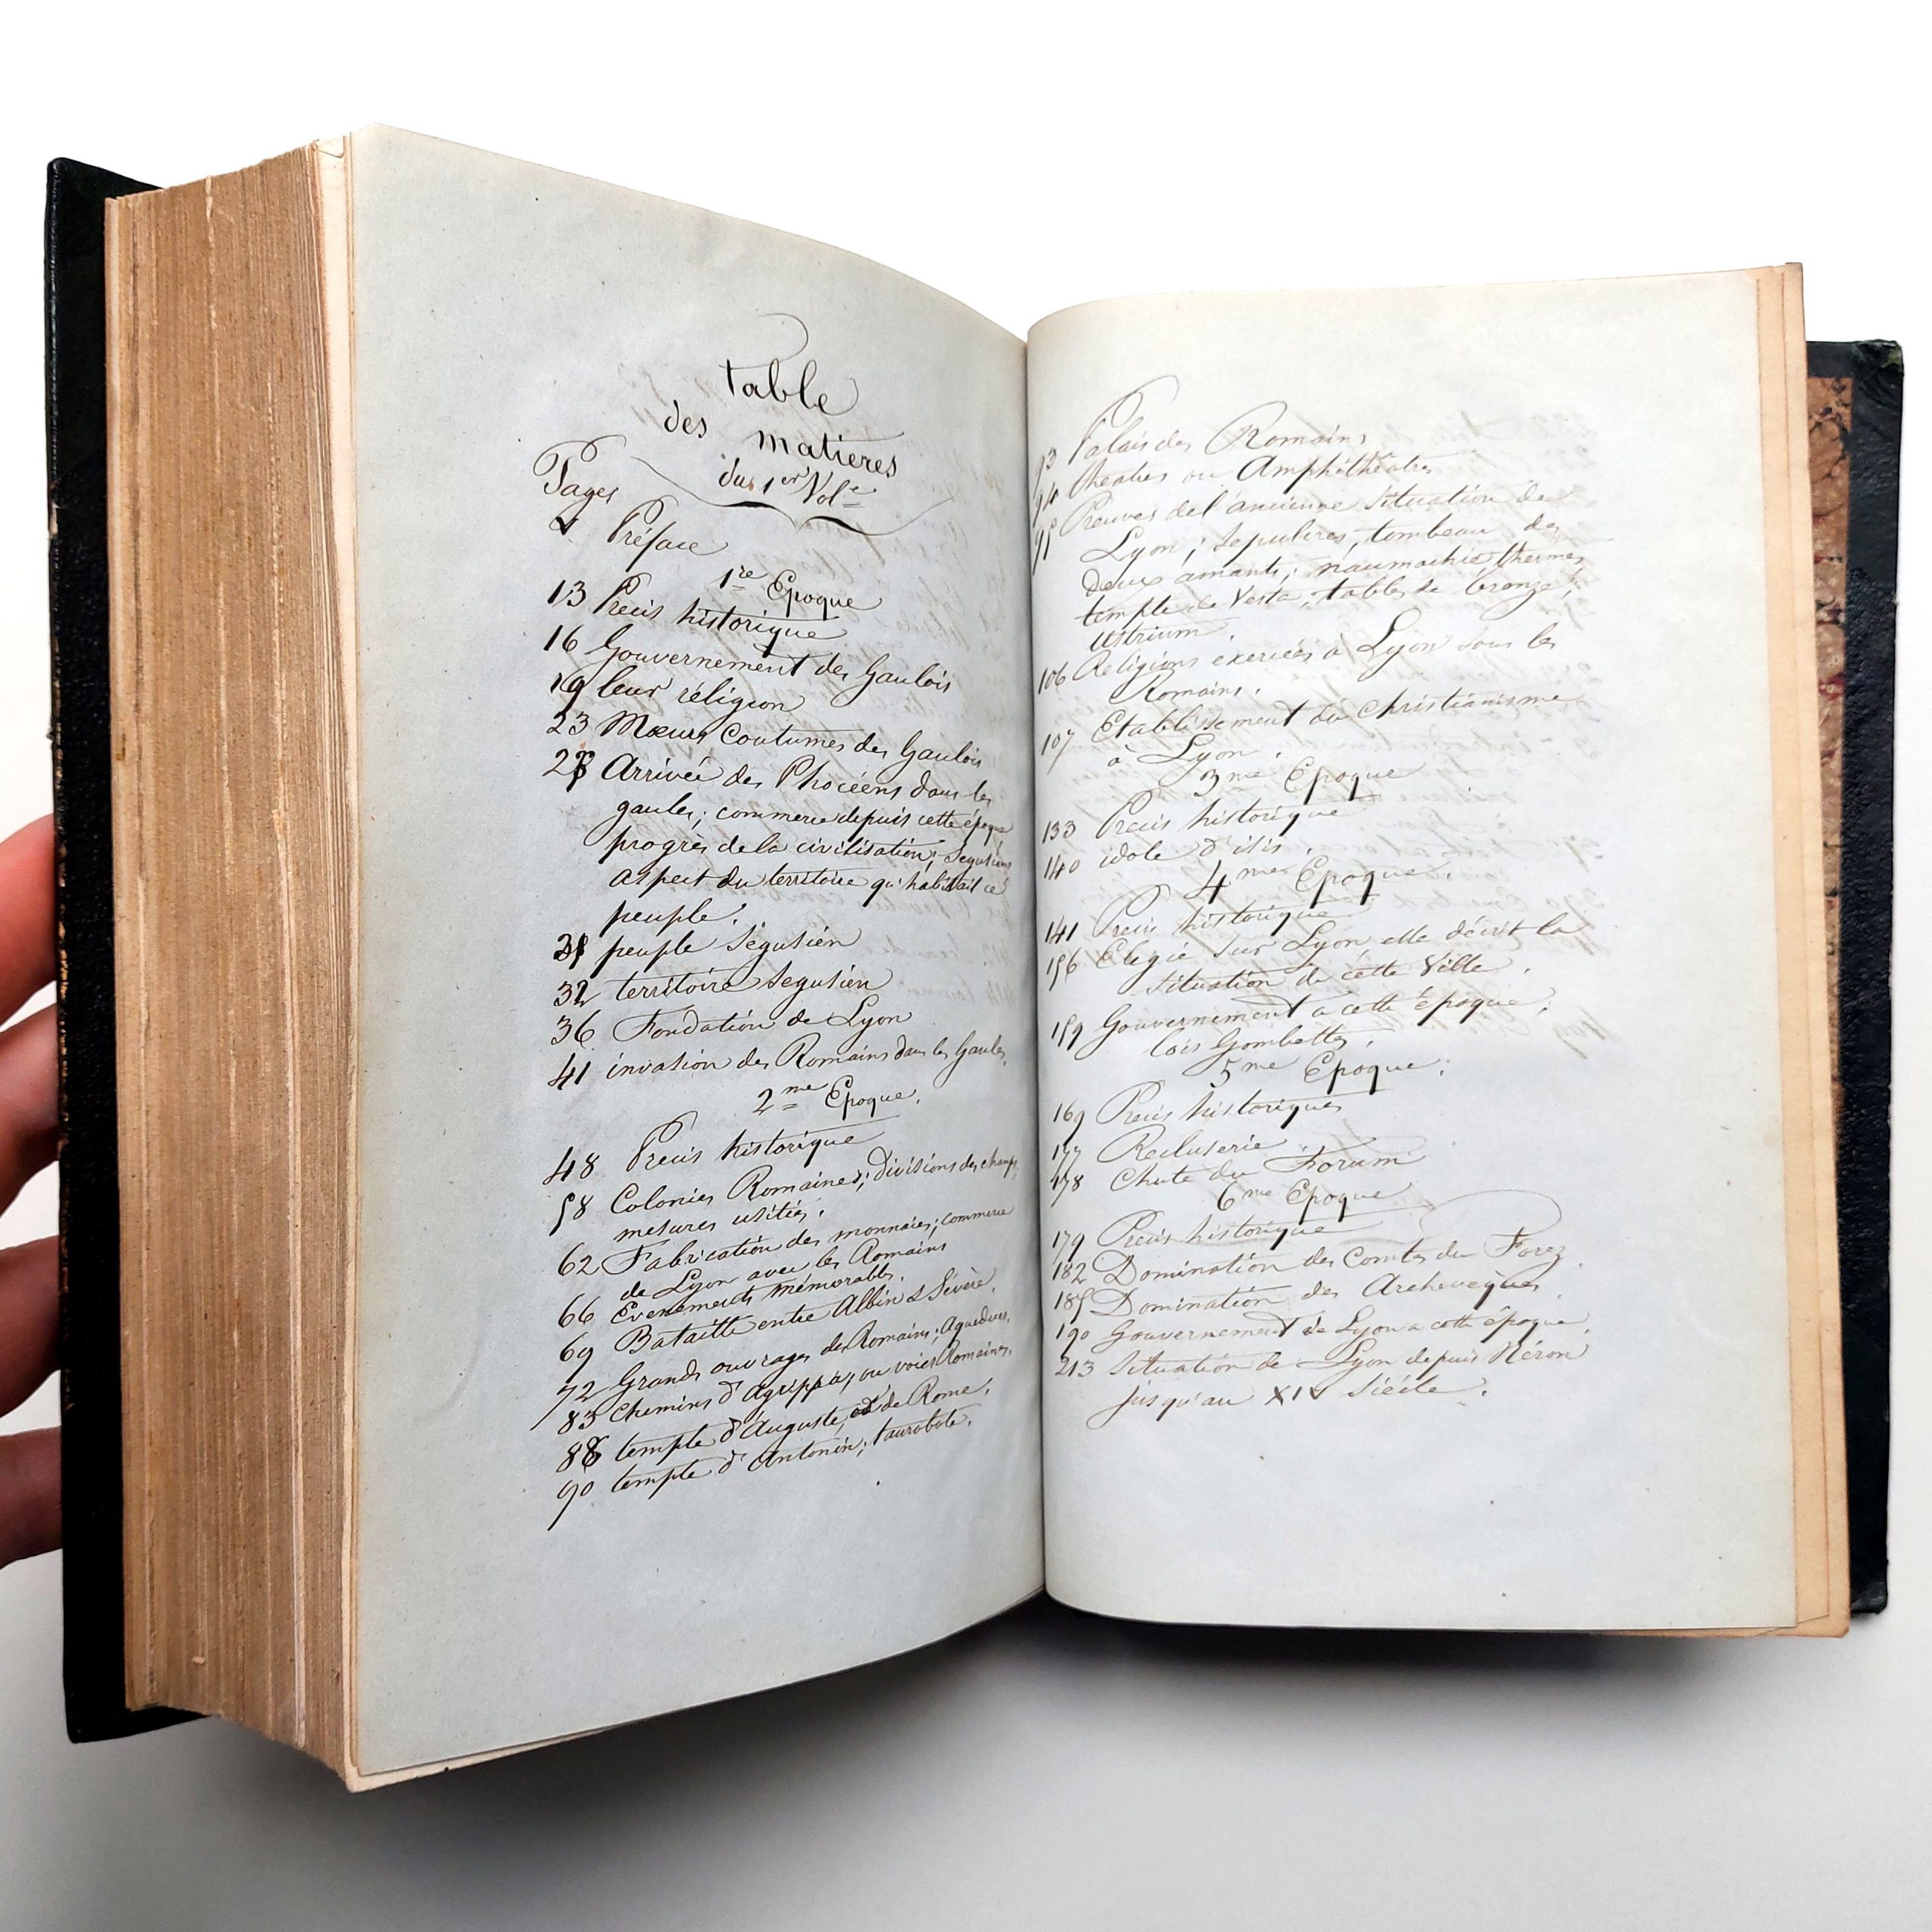 table
des matieres
du 1er Vol.e
Pages
Préface
1re Epoque
13 Precis historique
16 Gouvernement des Gaulois
19 leur réligion
23 Mœurs Coutumes des Gaulois
Arrivée des Phocéens dans les
gaules; commerce depuis cette époque
progrès de la civilisation; Segusiens
aspect du territoire qu'habitait ce
peuple.
peuple Ségusién
32 territoire Segusién
36 Fondation de Lyon
41 invasion des Romains dans les Gaules.
2me Epoque.
48 Precis historique
58 Colonies Romaines; Divisions des champs,
mesures usitées.
62 Fabrication des monnaies; commerce
de Lyon avec les Romains
66 Evenements mémorables.
69 Bataille entre Albin & Sévère.
72 Grands ouvrages des Romains; Aqueducs.
83 Chemins d'Agrippa, ou voies Romaines.
88 temple d'Auguste, et de Rome.
90 temple d'Antonin; taurobole.
93 Palais des Romains
94 theatres ou Amphithéatres
95 Preuves de l'ancienne situation de
Lyon; sepulcres, tombeau des
Deux amants; naumachie, thermes,
temple de Vesta, tables de bronze;
ustrium.
106 Religions exercées à Lyon sous les
Romains.
107 Etablissement du Christianisme
à Lyon.
3me Epoque
133 Precis historique
140 idole d'isis.
4me Epoque.
141 Precis historique
156 Elegie sur Lyon, elle décrit la
situation de cette Ville.
159 Gouvernement a cette époque;
lois Gombettes.
5me Epoque;
169 Precis historiques
177 Recluserie
178 Chute du Forum
6me Epoque
179 Precis historique
182 Domination des Comtes du Forez
185 Domination des Archeveques.
190 Gouvernement de Lyon a cette époque.
213 Situation de Lyon depuis Néron
jusqu'au XIV Siécle.